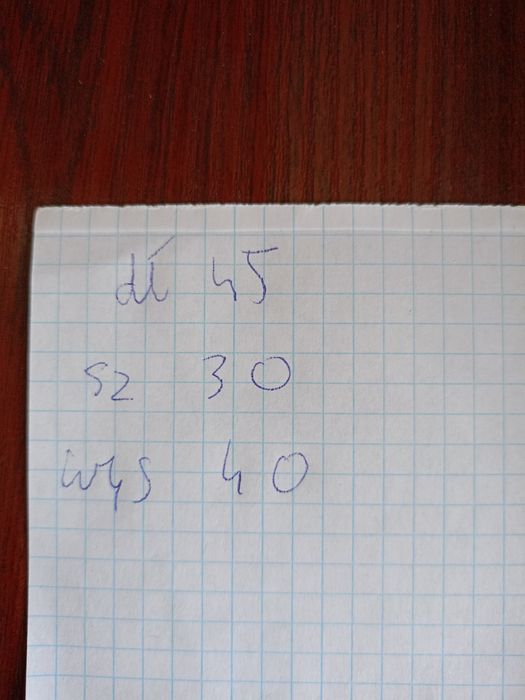 dł 45
sz 30
wys 40